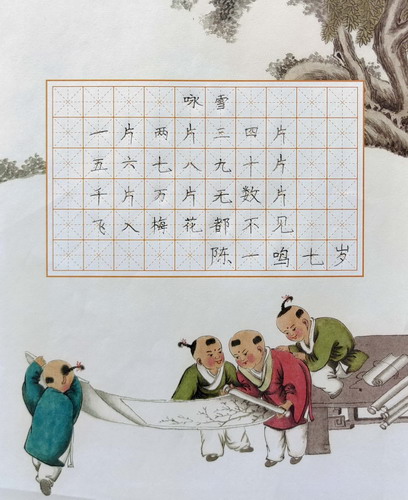 咏雪
一片两片三四片
五六七八九十片
千片万片无数片
飞入梅花都不见
陈一鸣七岁